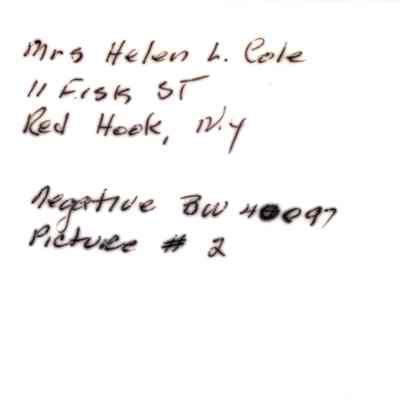 Mrs Helen L. Cole
11 Fisk ST
Red Hook, N.Y
Negative BW
Picture # 2